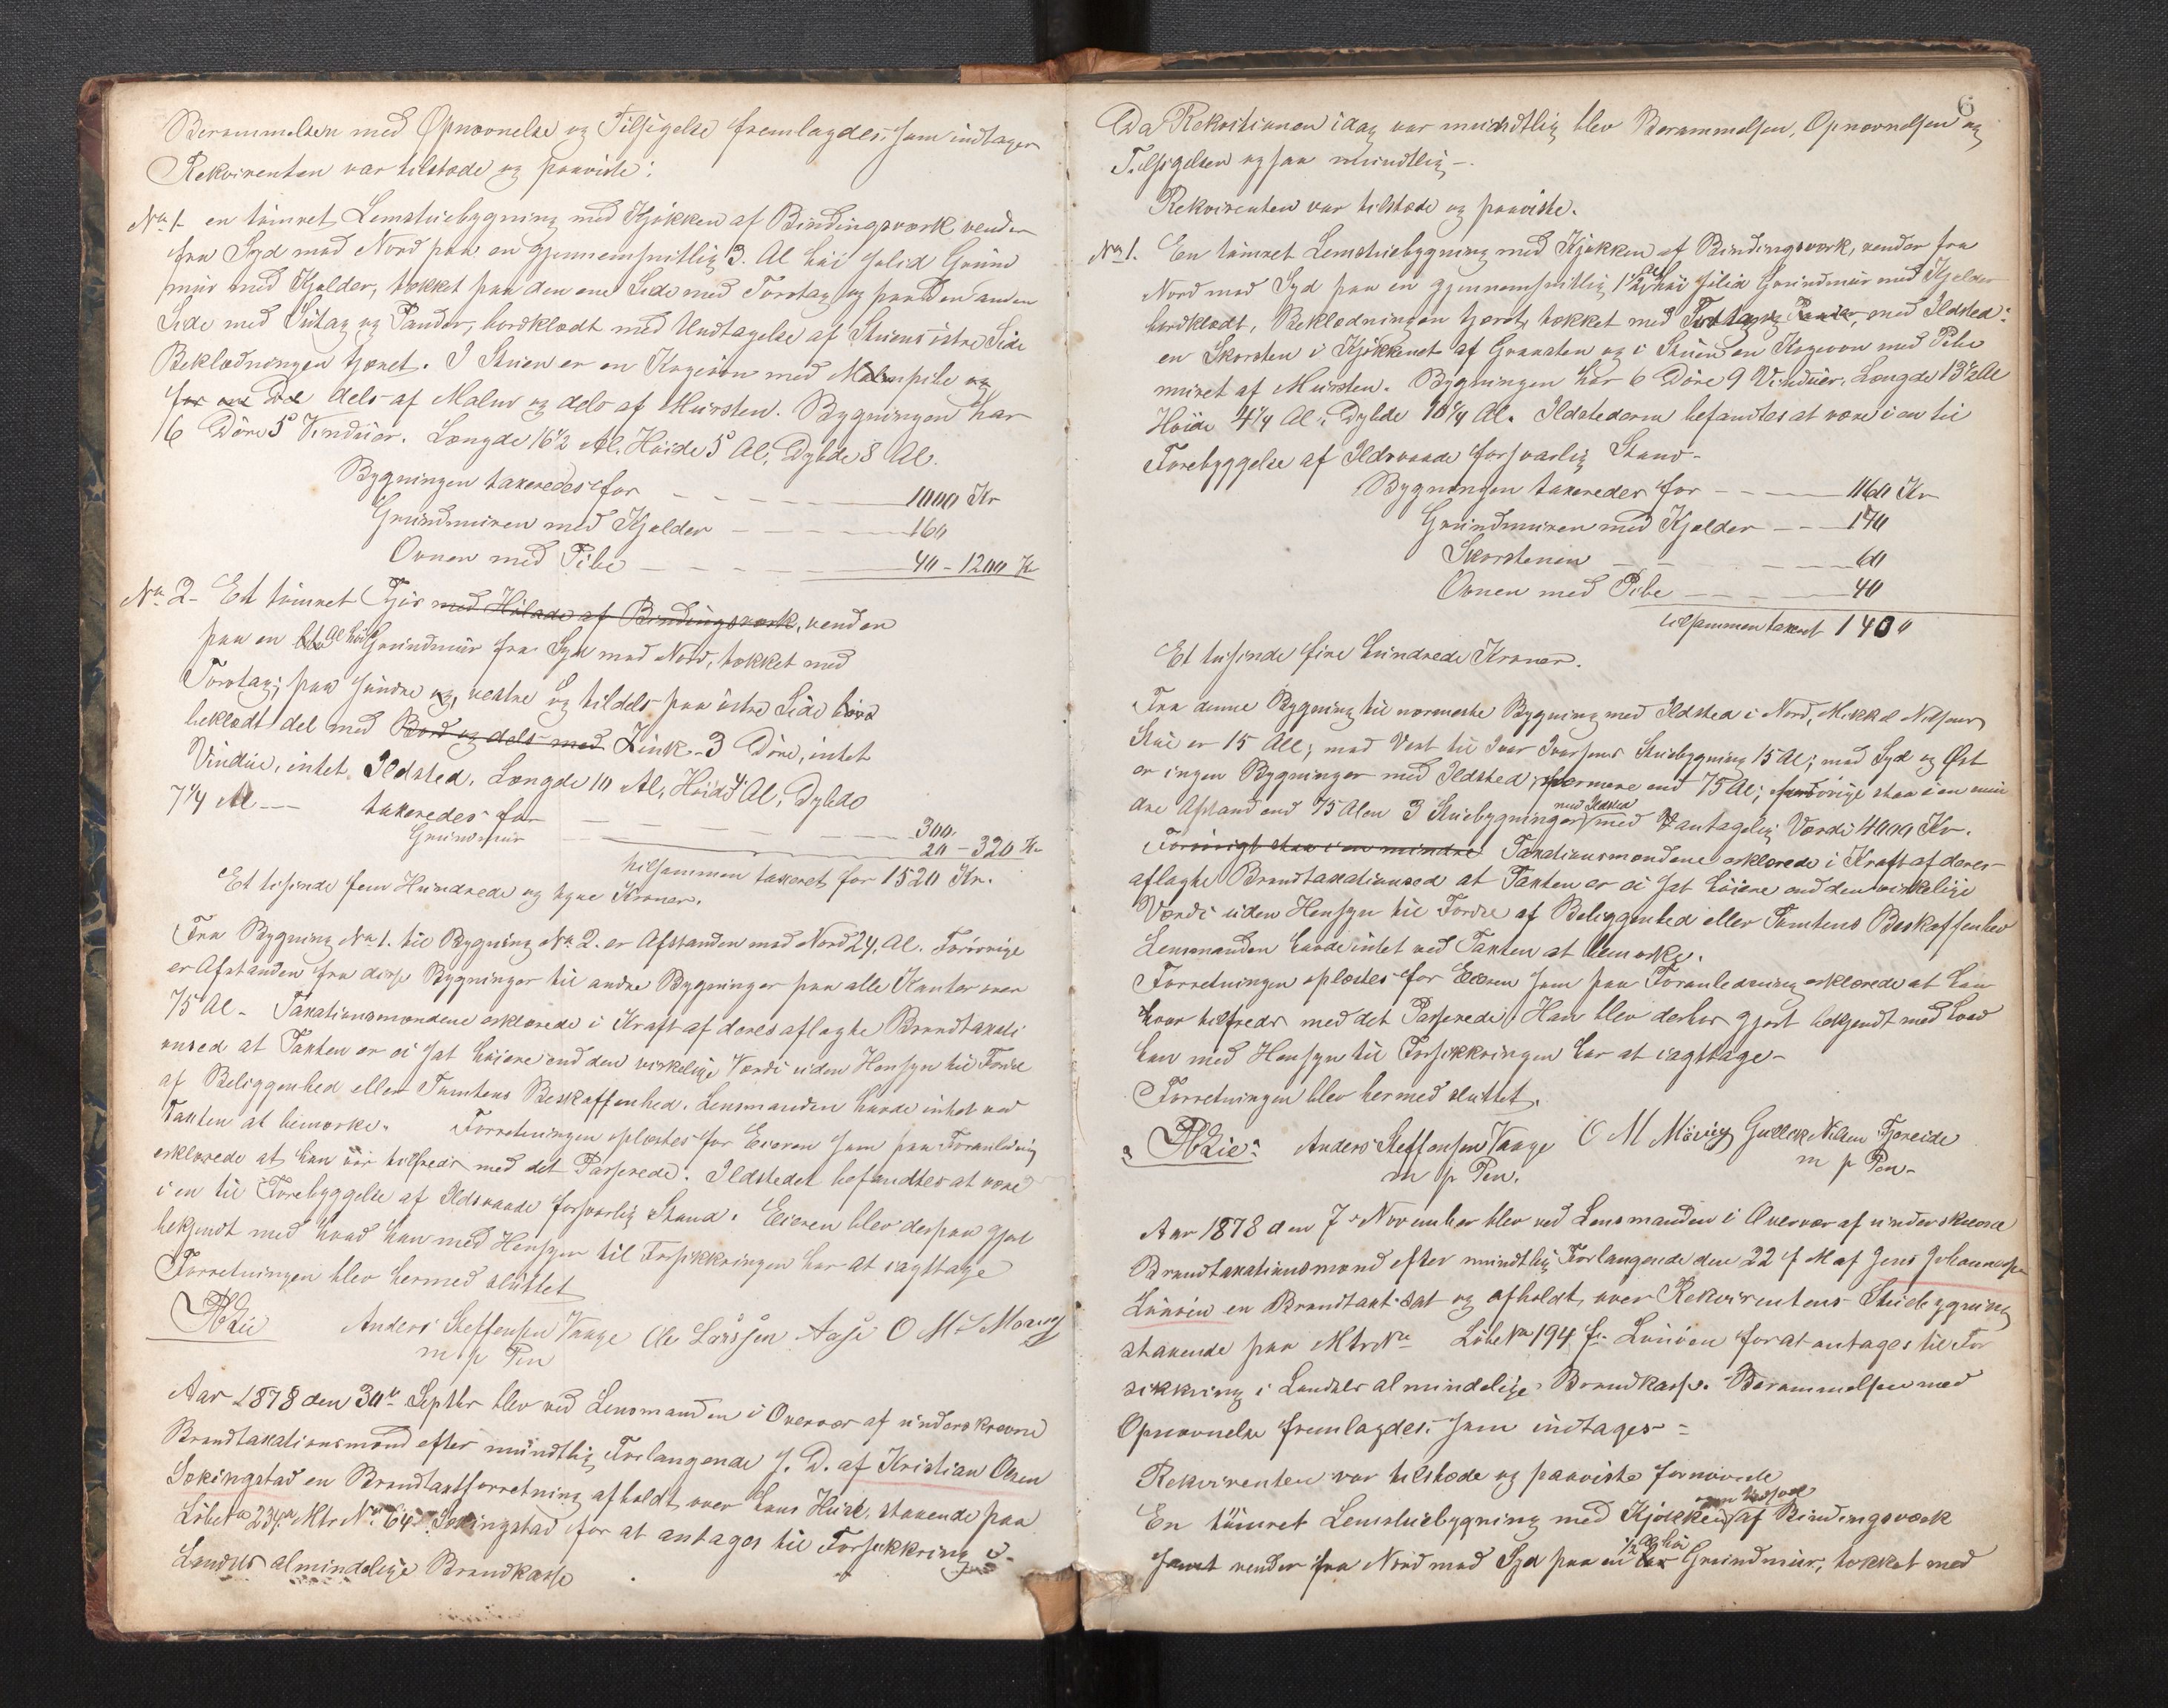 Berammelsen med Opnævnelse og Tilsigelse fremlagdes som indtages
Rekvirenten var tilstæde og paaviste:
No 1- en tømret Lemstuebygning med Kjøkken af Bindingsværk vender
fra Syd mod Nord paa en gjennemsnitlig 3. Al høi solid Grund
mur med Kjelder, tækket paa den ene Side med Torvtag og paa den anden
Side med Sutag og Pander, bordklædt med Undtagelse af Stuens østre Side
Beklædningen tjæret. I Stuen er en Kogeovn med Malmpibe og
for en Del dels af Malm og dels af Mursten. Bygningen har
6 Døre 5 Vinduer. Længde 16 1/2 Al. Høide 5 Al, Dybde 8 Al.
Bygningen taxeredes for 1000 Kr
Grundmuren med Kjelder 160
Ovnen med Pibe 40 - 1200 Kr
No 2- Et tømret Fjøs med Hølade af Bindingsværk, vender
paa en Al høi Grundmur fra Syd mod Nord, tækket med
Torvtag; paa søndre og, vestre og tildels paa østre Side bord
beklædt del med Bord og dels med Zink. 3 Døre, intet
Vindue, intet Ildsted. Længde 10 Al, Høide 4 Al, Dybde
7 1/4 Al --- taxeredes for 300
Grundmur 20 - 320 Kr
tilsammen taxeret for 1520 Kr.
Et tusinde fem Hundrede og tyve Kroner.
Fra Bygning No 1. til Bygning No 2. er Afstanden mod Nord 24. Al. Forøvrige
er Afstanden fra disse Bygninger til andre Bygninger paa alle Kanter over
75 Al - Taxationsmændene erklærede i Kraft af deres aflagte Brandtaxati
onsed at Taxten er ei sat høiere end den virkelige Værdi uden Hensyn til Fordel
af Beliggenhed eller Tomtens Beskaffenhed. Lensmanden havde intet ved
Taxten at bemærke. Forretningen oplæstes for Eieren som paa Foranledning
erklærede at han var tilfreds med det Passerede. Ildstedet befandtes at være
i en til Forebyggelse af Ildsvaade forsvarlig Stand. Eieren blev derpaa gjort
bekjendt med hvad han med Hensyn til Forsikkringen har at iagttage
Forretningen blev hermed sluttet
Anders Steffensen Vaage Ole Larssen Aase O M Møvig
m p Pen
Aar 1878 den 30te Septbr blev ved Lensmanden i Overvær af underskrevne
Brandtaxationsmænd efter mundtlig Forlangende s. D. af Kristian Olsen
Sekingstad en Brandtaxtforretning afholdt over hans Huse, staaende paa
Løbe No 234a Mtr No 64 Sekingstad for at antages til Forsikkring i
Landets almindelige Brandkasse
6
Da Rekvisitionen idag var mundtlig blev Berammelsen, Opnævnelsen og
Tilsigelsen ogsaa mundtlig -.
Rekvirenten var tilstæde og paaviste.
No 1. En tømret Lemstuebygning med Kjøkken af Bindingsværk, vender fra
Nord mod Syd paa en gjennemsnitlig 1 1/2 Al høi solid Grundmur med Kjelder
bordklædt, Beklædningen tjæret, tækket med Torvtag og Pander, med Ildsted:
en Skorsten i Kjøkkenet af Graasten og i Stuen en Kogeovn med Pibe
muret af Mursten. Bygningen har 6 Døre 9 Vinduer. Længde 13 1/2 Al
Høide 4 1/4 Al. Dybde 10 1/4 Al. Ildstederne befandtes at være i en til
Forebyggelse af Ildsvaade forsvarlig Stand-
Bygningen taxeredes for 1160 Kr
Grundmuren med Kjelder 140
Skorstenen 60
Ovnen med Pibe 40
tilsammen taxeret 1400
Et tusinde fire hundrede Kroner.
Fra denne Bygning til nærmeste Bygning med Ildsted i Nord, Mikkel Nilsens
Stue er 15 All; mod Vest til Iver Iversens Stuebygning 15 Al; mod Syd og Øst
er ingen Bygninger med Ildsted nærmere end 75 Al; forøvrige staa i en min
dre Afstand end 75 Alen 3 Stuebygninger med Ildsted med antagelig Værdi 4000 Kr.
Forøvrigt staa i en mindre Taxationsmændene erklærede i Kraft af deres
aflagte Brandtaxationsed at Taxten er ei sat høiere end den virkelige
Værdi uden Hensyn til Fordel af Beliggenhed eller Tomtens Beskaffenhed
Lensmanden havde intet ved Taxten at bemærke.
Forretningen oplæstes for Eieren som paa Foranledning erklærede at han
var tilfreds med det Passerede. Han blev derhos gjort bekjendt med hvad
han med Hensyn til Forsikkringen har at iagttage-
Forretningen blev hermed sluttet.
Anders Steffensen Vaage O M Møvig Gullek Nilsen Fjæreide
m p Pen. m p Pen-
Aar 1878 den 7de November blev ved Lensmanden i Overvær af underskrevne
Brandtaxationsmænd efter mundtlig Forlangende den 22 f M af Jens Johannessen
Lønøen en Brandtaxt sat og afholdt, over Rekvirentens Stuebygning
staaende paa Mtr No Løbe No 194 f. Lønøen for at antages til For
sikkring i Landets almindelige Brandkasse. Berammelsen med
Opnævnelse fremlagdes som indtages =
Rekvirenten var tilstæde og paaviste fornævnte
En tømret Lemstuebygning med Kjøkken af Bindingsværk
samt vender fra Nord mod Syd paa en 1/2 Al høi Grundmur, tækket med